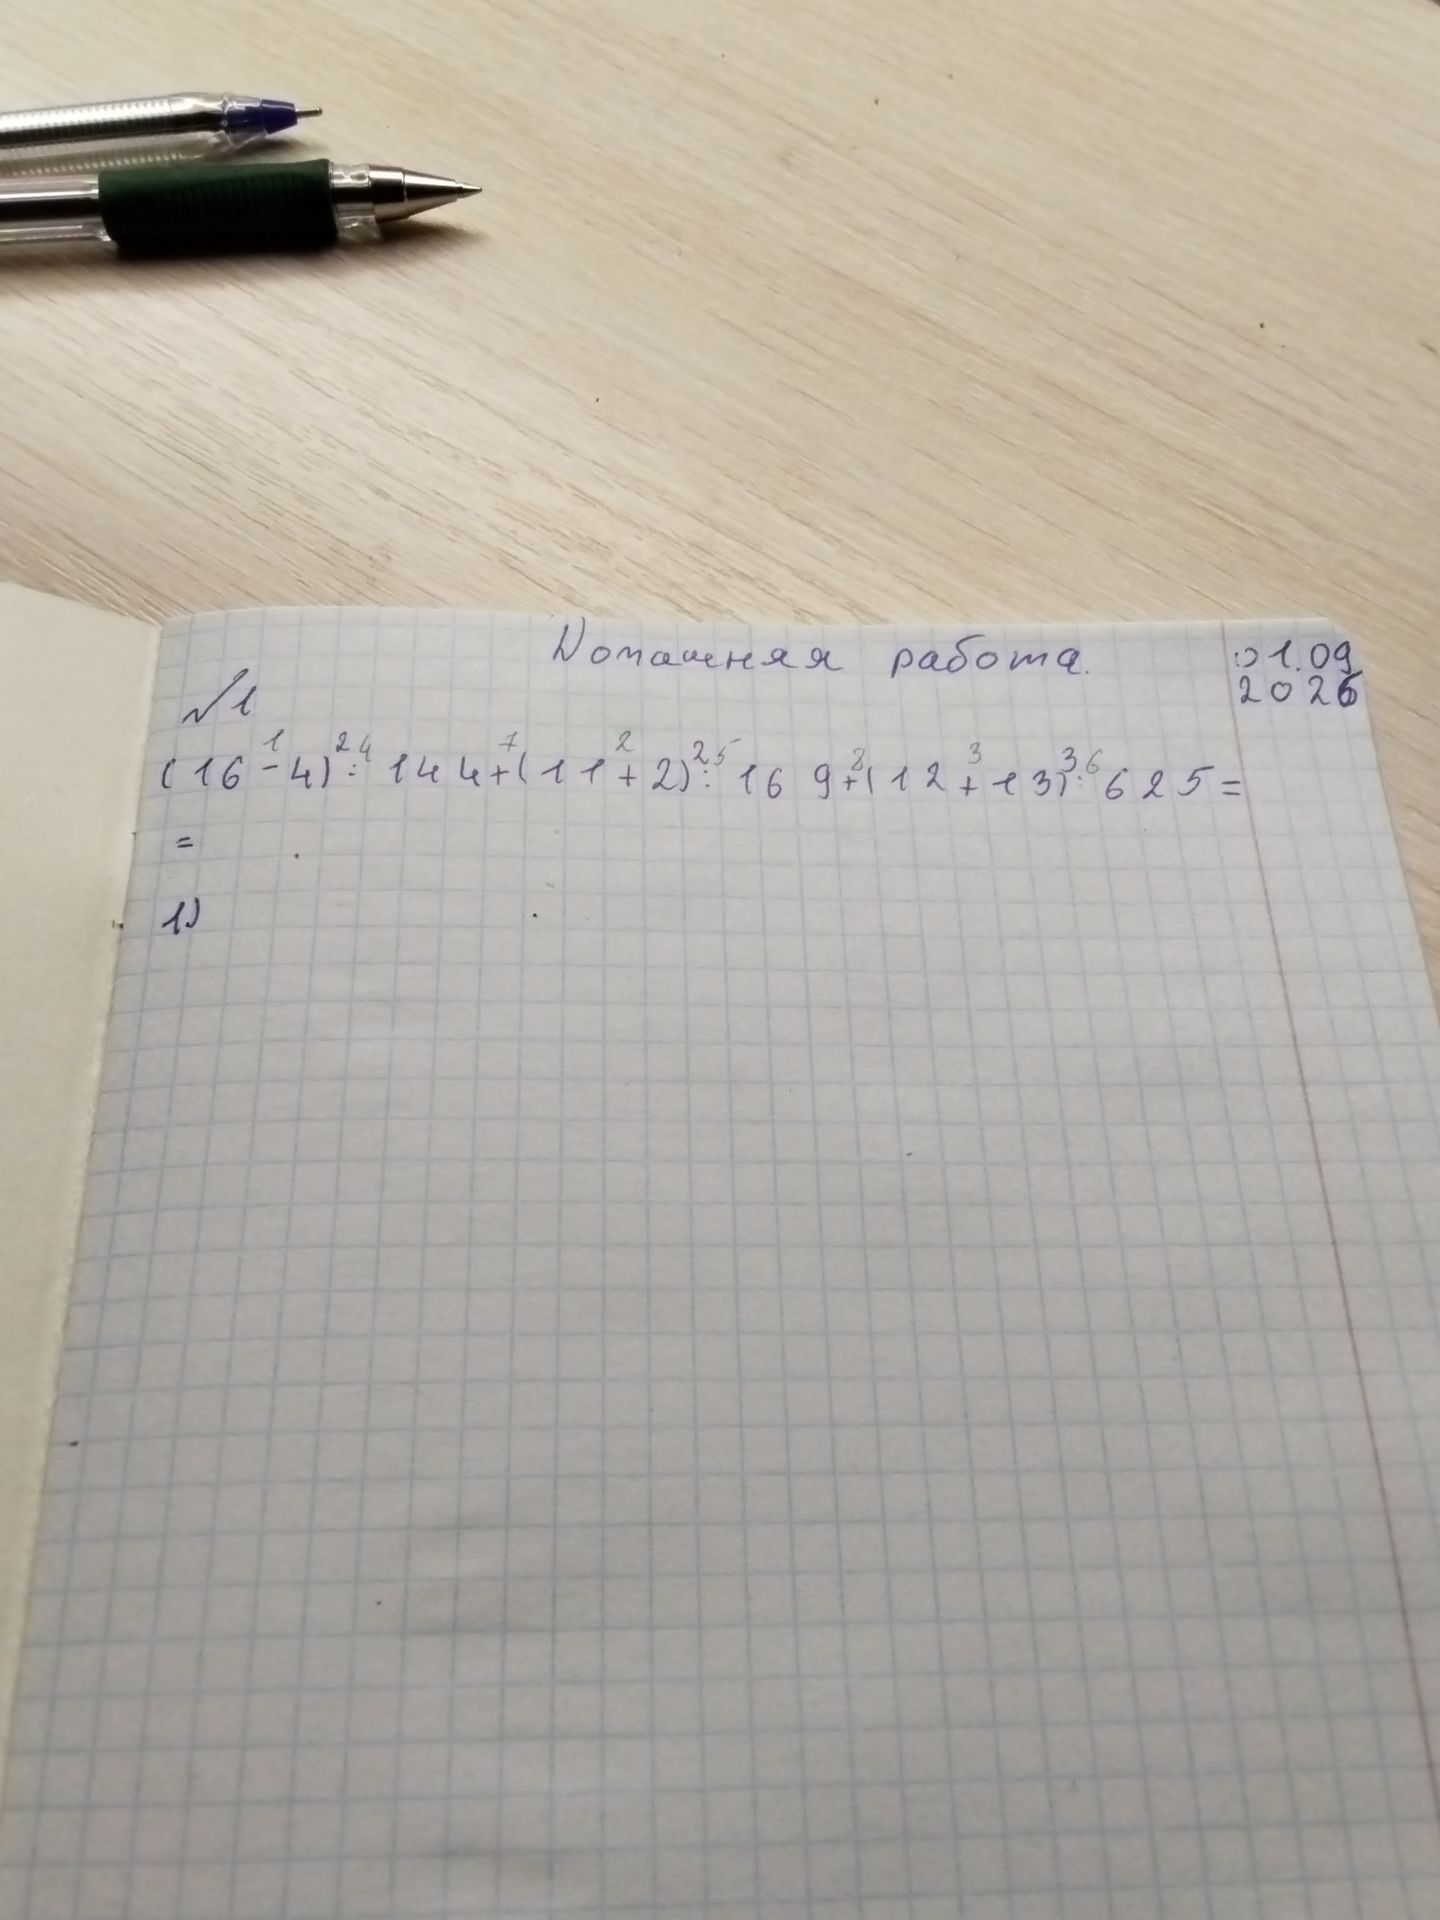 Домашняя работа.
01.09
2026
№1
(16-4)²:144+(11+2)²:169+(12+13)³:625=
1 4 7 2 5 8 3 6
=
1)